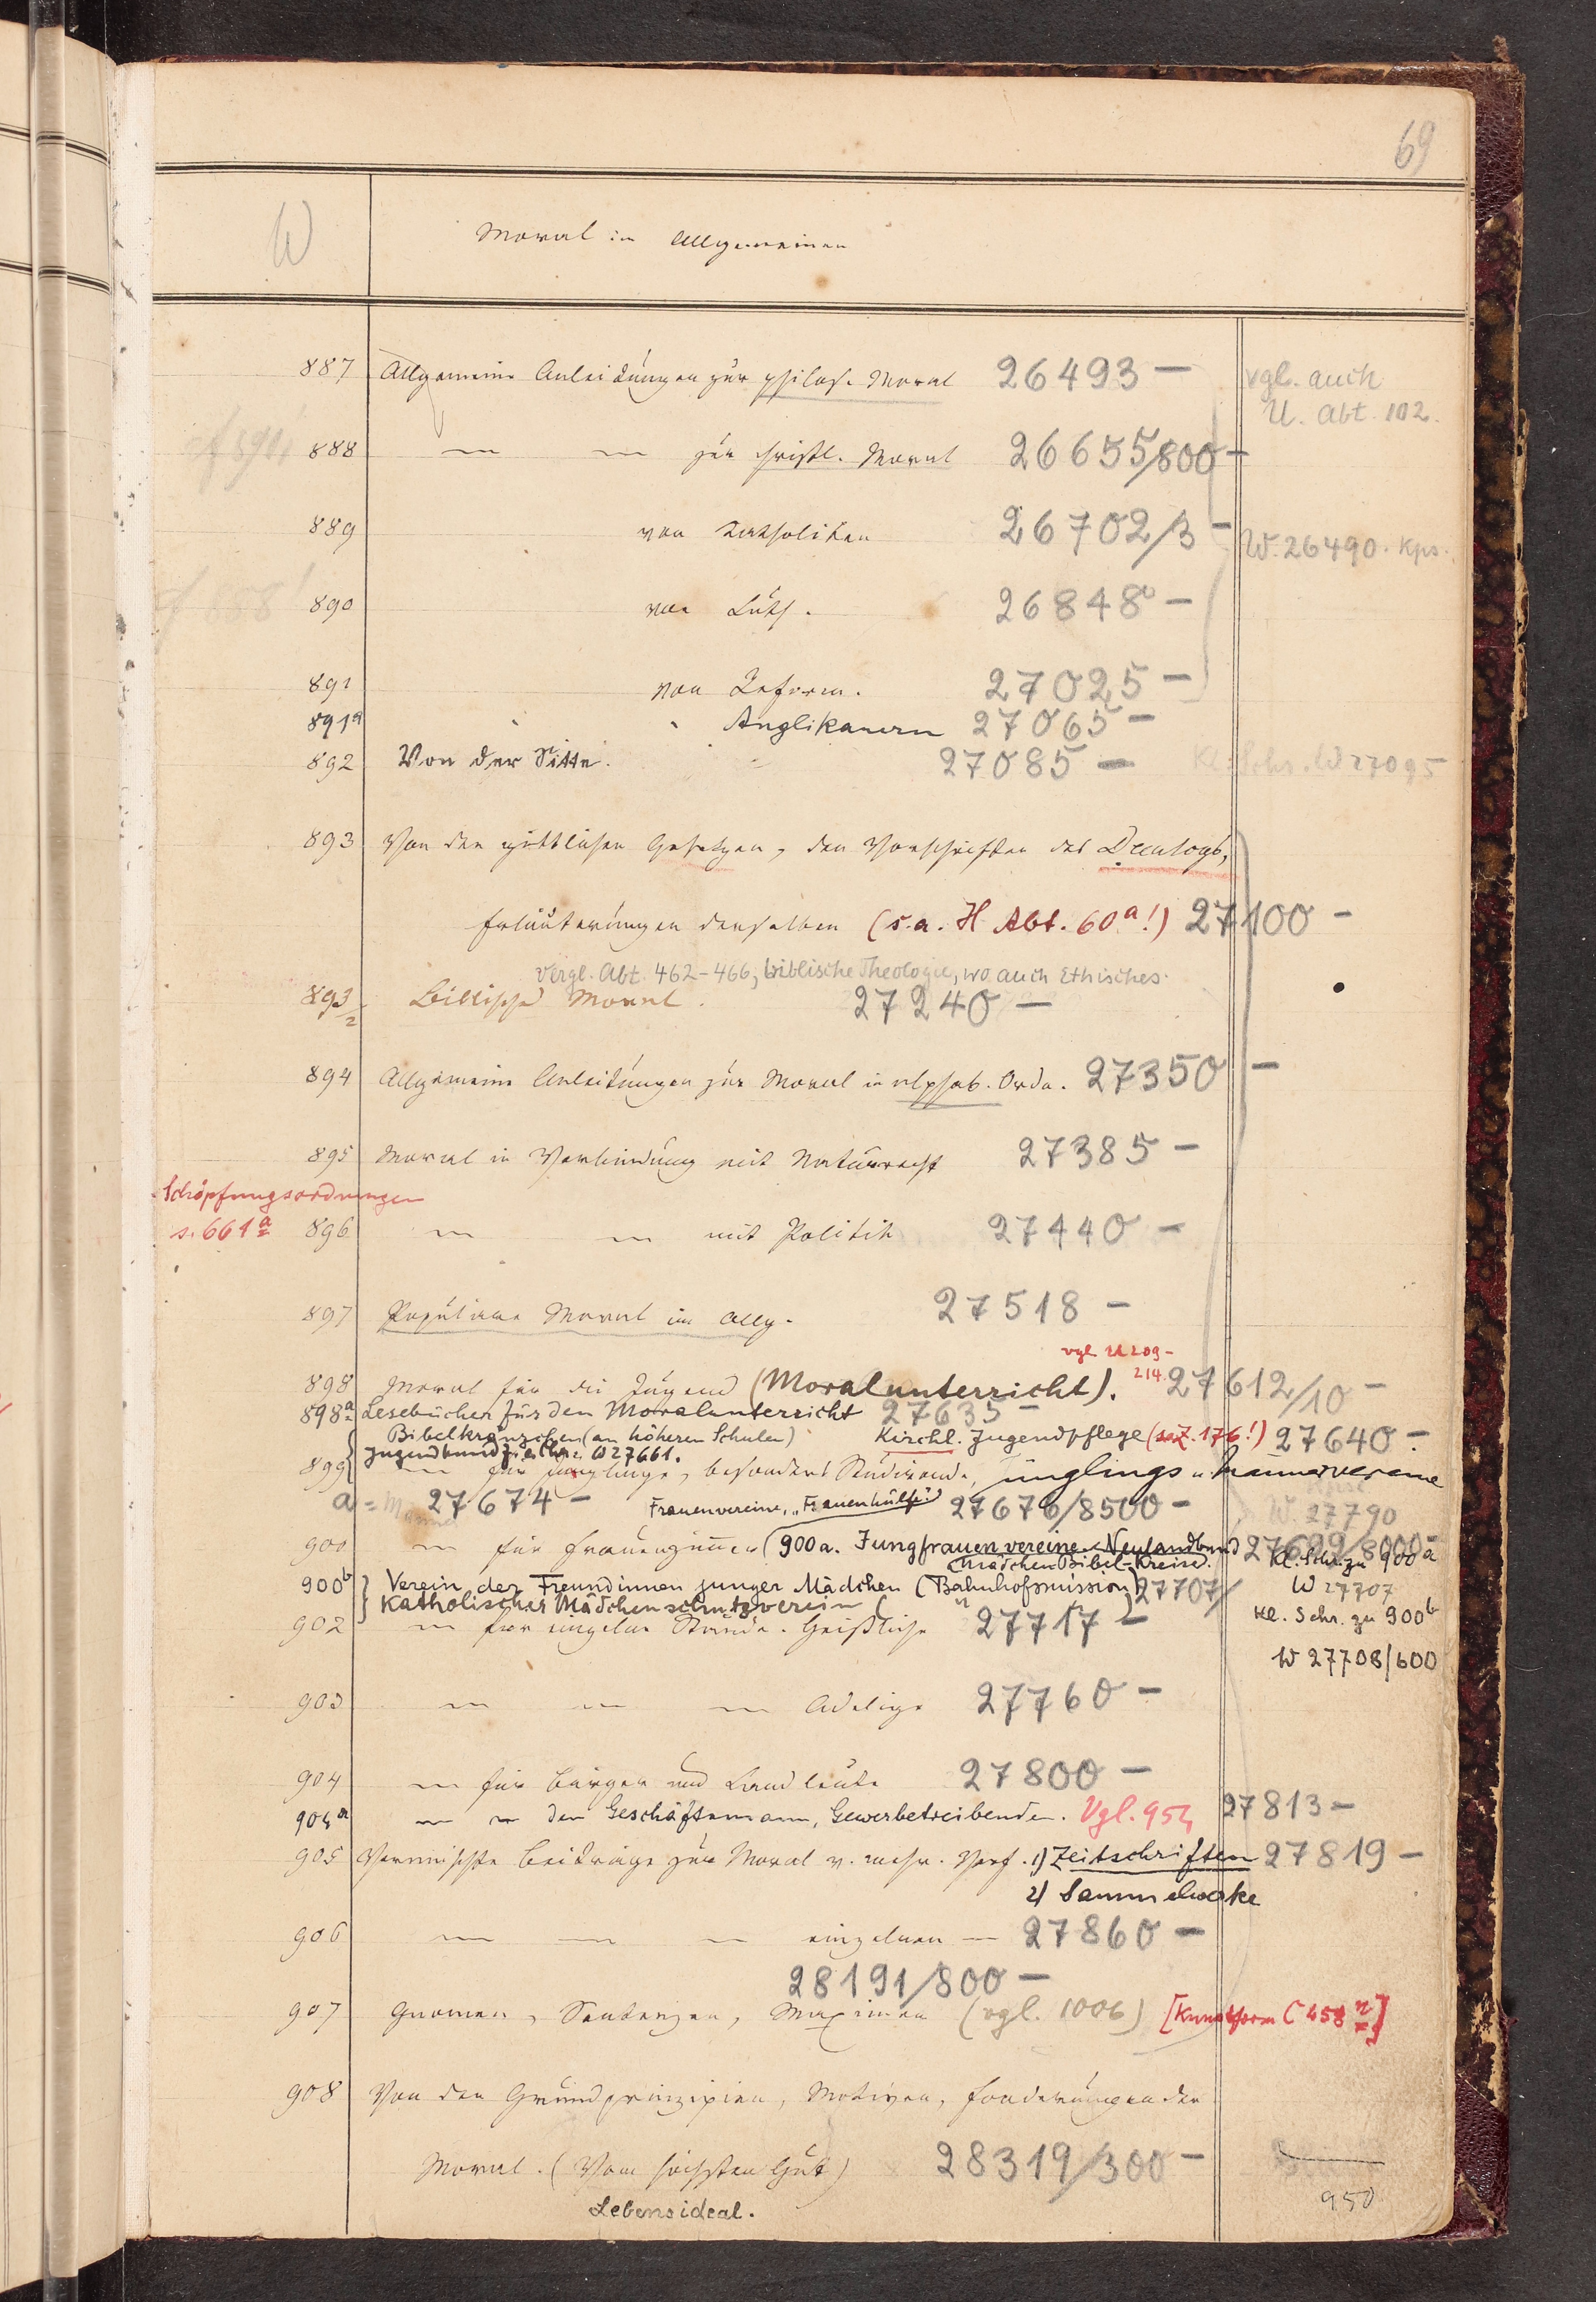 69
W
Moral im Allgemeinen
887 Allgemeine Anleitungen zur philos. Moral 26493 – vgl. auch
U. Abt. 102.
888 — — zur christl. Moral 26655/800 –
889 von Katholiken 26702/3 – W. 26490. Kps.
890 von Luth. 26848 –
891 von Reform. 27025 –
891a " Anglikanern 27065 –
892 Von der Sitte. 27085 – Kl. Schr. W 27095
893 Von den göttlichen Gesetzen, den Vorschriften des Decalogs,
Erläuterungen derselben (s. a. H Abt. 60a!) 27100 –
Vergl. Abt. 462-466, biblische Theologie, wo auch Ethisches.
893/2 Biblische Moral. 27240 –
894 Allgemeine Anleitungen zur Moral in alphab. Ordn. 27350 –
895 Moral in Verbindung mit Naturrecht 27385 –
Schöpfungsordnungen
s. 661a 896 — — mit Politik 27440 –
897 Populäre Moral im Allg. 27518 –
vgl U 209-
214.
898 Moral für die Jugend (Moralunterricht). 27612/10 –
898a Lesebücher für den Moralunterricht 27635 –
Bibelkränzchen (an höheren Schulen) Kirchl. Jugendpflege (s. Z. 176!) 27640 –
Jugendbund W 27661.
899 — für Jünglinge, besonders Studirende, Jünglings u Männervereine
a = 27674 – Frauenvereine, „Frauenhülfe“ 27676/8500 – W. 27790
900 — für Frauenzimmer (900a. Jungfrauenvereine Neulandbund 27699/8000 –
(Mädchen Bibel-Kreise. Kl. Schr. zu 900a
900b Verein der Freundinnen junger Mädchen (Bahnhofsmission) 27707/ W 27707
Katholischer Mädchenschutzverein ( " ) Kl. Schr. zu 900b
902 — für einzelne Stände. Geistliche 27717 –
W 27708/600
903 — — — Adelige 27760 –
904 — für Bürger und Landleute 27800 –
904a — — den Geschäftsmann, Gewerbetreibenden. Vgl. 954 27813 –
905 Vermischte Beiträge zur Moral v. mehr. Verf. 1) Zeitschriften 27819 –
2) Sammelwerke
906 — — — einzelnen — 27860 –
28191/800 –
907 Gnomen, Sentenzen, Maximen (vgl. 1006) [Kunstform C 458n]
908 Von den Grundprinzipien, Motiven, Forderungen der
Moral. (Vom höchsten Gut) 28319/300 –
Lebensideal.
950